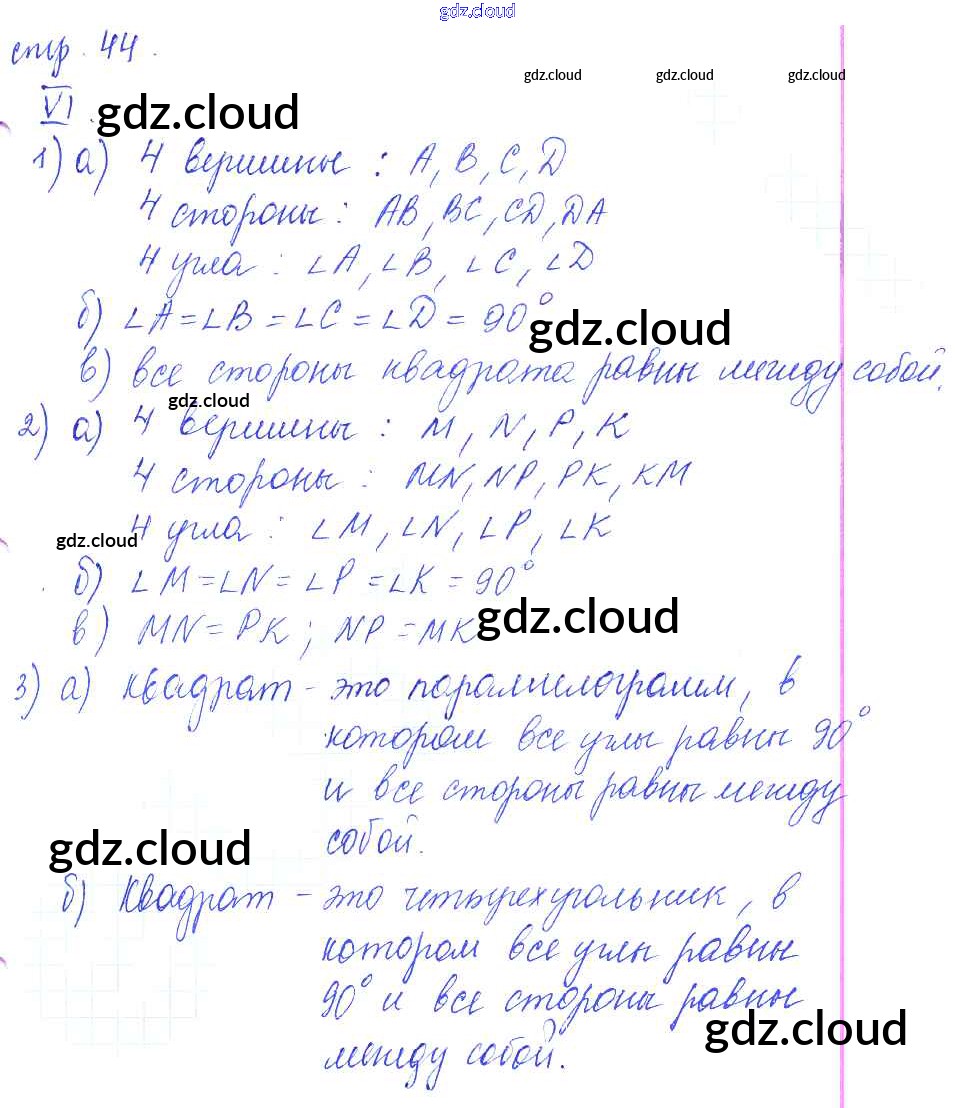 gdz.cloud
стр. 44.
gdz.cloud gdz.cloud gdz.cloud
VI. gdz.cloud
1) а) 4 вершины : A, B, C, D
4 стороны : AB, BC, CD, DA
4 угла : ∠A, ∠B, ∠C, ∠D
б) ∠A = ∠B = ∠C = ∠D = 90° gdz.cloud
в) все стороны квадрата равны между собой.
gdz.cloud
2) а) 4 вершины : M, N, P, K
4 стороны : MN, NP, PK, KM
gdz.cloud
4 угла : ∠M, ∠N, ∠P, ∠K
б) ∠M = ∠N = ∠P = ∠K = 90°
в) MN = PK ; NP = MK gdz.cloud
3) а) Квадрат - это параллелограмм, в
котором все углы равны 90°
и все стороны равны между
собой.
gdz.cloud
б) Квадрат - это четырехугольник, в
котором все углы равны
90° и все стороны равны
gdz.cloud
между собой.